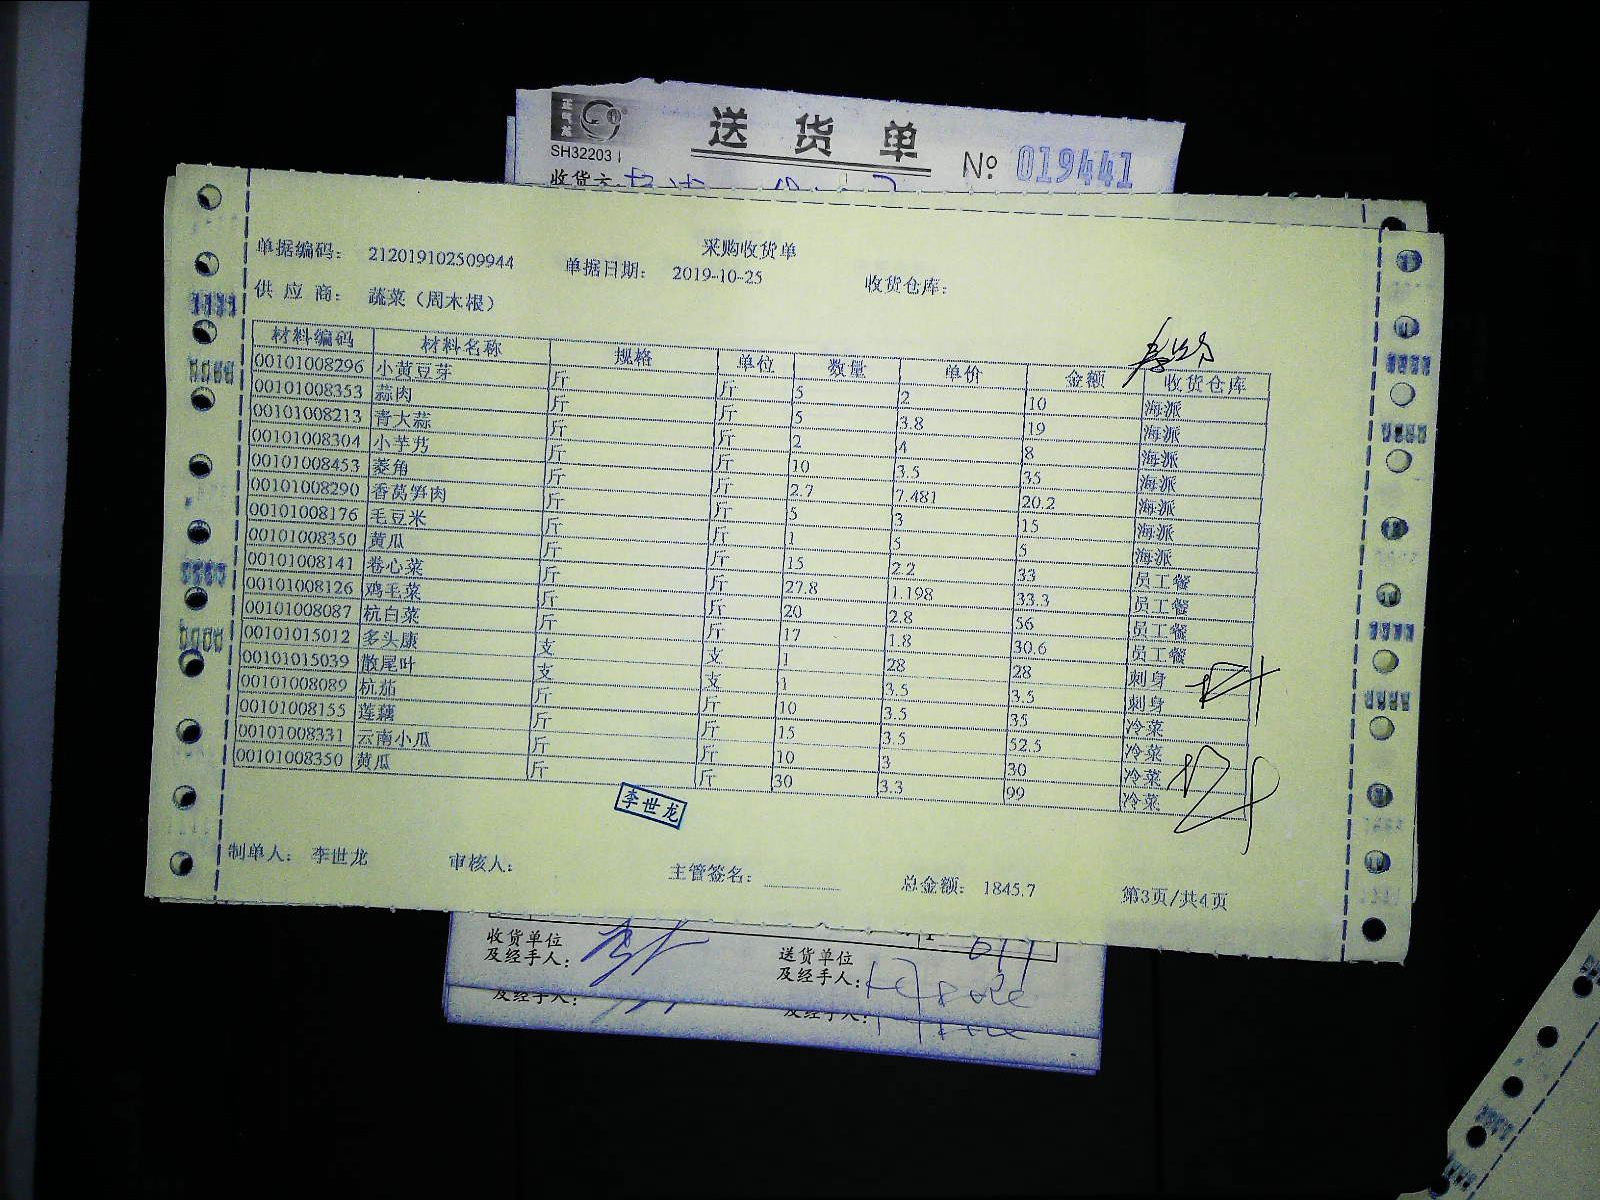 正气龙
送货单
SH32203
№ 019441
收货
采购收货单
单据编码： 212019102509944 单据日期： 2019-10-25 收货仓库：
供 应 商： 蔬菜（周木根）
材料编码 材料名称 规格 单位 数量 单价 金额 收货仓库
00101008296 小黄豆芽 斤 斤 5 2 10 海派
00101008353 蒜肉 斤 斤 5 3.8 19 海派
00101008213 青大蒜 斤 斤 2 4 8 海派
00101008304 小芋艿 斤 斤 10 3.5 35 海派
00101008453 菱角 斤 斤 2.7 7.481 20.2 海派
00101008290 香莴笋肉 斤 斤 5 3 15 海派
00101008176 毛豆米 斤 斤 1 5 5 海派
00101008350 黄瓜 斤 斤 15 2.2 33 员工餐
00101008141 卷心菜 斤 斤 27.8 1.198 33.3 员工餐
00101008126 鸡毛菜 斤 斤 20 2.8 56 员工餐
00101008087 杭白菜 斤 斤 17 1.8 30.6 员工餐
00101015012 多头康 支 支 1 28 28 刺身
00101015039 散尾叶 支 支 1 3.5 3.5 刺身
00101008089 杭茄 斤 斤 10 3.5 35 冷菜
00101008155 莲藕 斤 斤 15 3.5 52.5 冷菜
00101008331 云南小瓜 斤 斤 10 3 30 冷菜
00101008350 黄瓜 斤 斤 30 3.3 99 冷菜
李世龙
制单人： 李世龙 审核人： 主管签名： 总金额： 1845.7 第3页/共4页
收货单位 送货单位
及经手人： 及经手人：
及经手人： 及经手人：